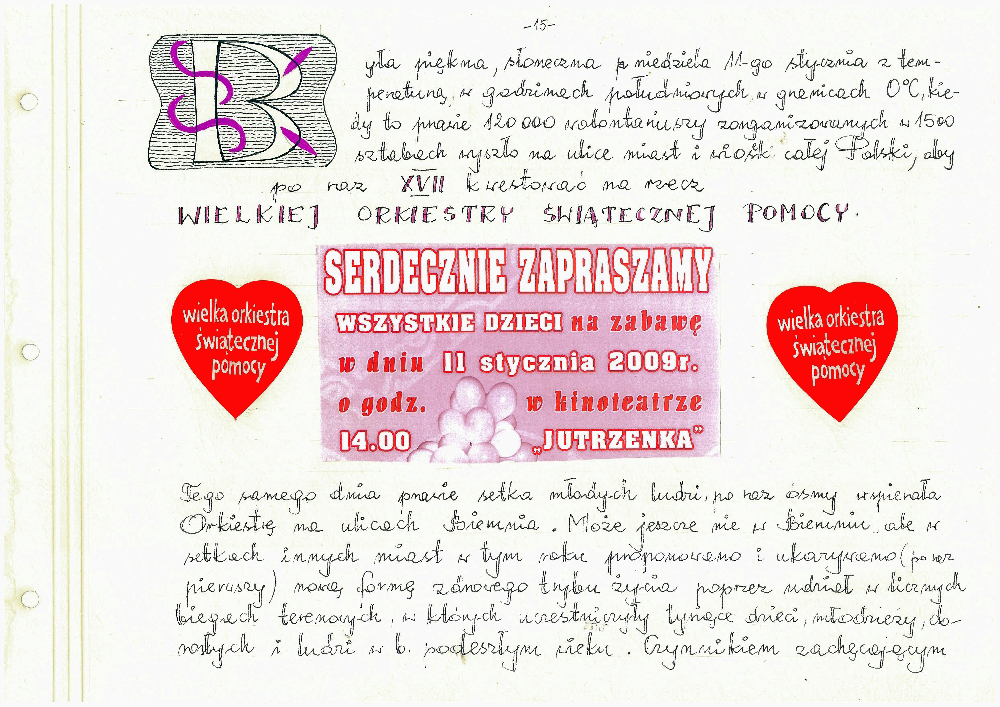 -15-
Była piękna, słoneczna niedziela 11-go stycznia z tem-
peraturą, w godzinach południowych, w granicach 0°C, kie-
dy to prawie 120 000 wolontariuszy zorganizowanych w 1500
sztabach wyszło na ulice miast i wiosk całej Polski, aby
po raz XVII kwestować na rzecz
WIELKIEJ ORKIESTRY ŚWIĄTECZNEJ POMOCY.
SERDECZNIE ZAPRASZAMY
WSZYSTKIE DZIECI na zabawę
w dniu 11 stycznia 2009r.
o godz. w kinoteatrze
14.00 „JUTRZENKA"
wielka orkiestra
świątecznej
pomocy
wielka orkiestra
świątecznej
pomocy
Tego samego dnia prawie setka młodych ludzi, po raz ósmy wspierała
Orkiestrę na ulicach Bierunia. Może jeszcze nie w Bieruniu, ale w
setkach innych miast w tym roku proponowano i ukazywano (po raz
pierwszy) nową formę zdrowego trybu życia poprzez udział w licznych
biegach terenowych, w których uczestniczyły tysiące dzieci, młodzieży, do-
rosłych i ludzi w b. podeszłym wieku. Czynnikiem zachęcającym